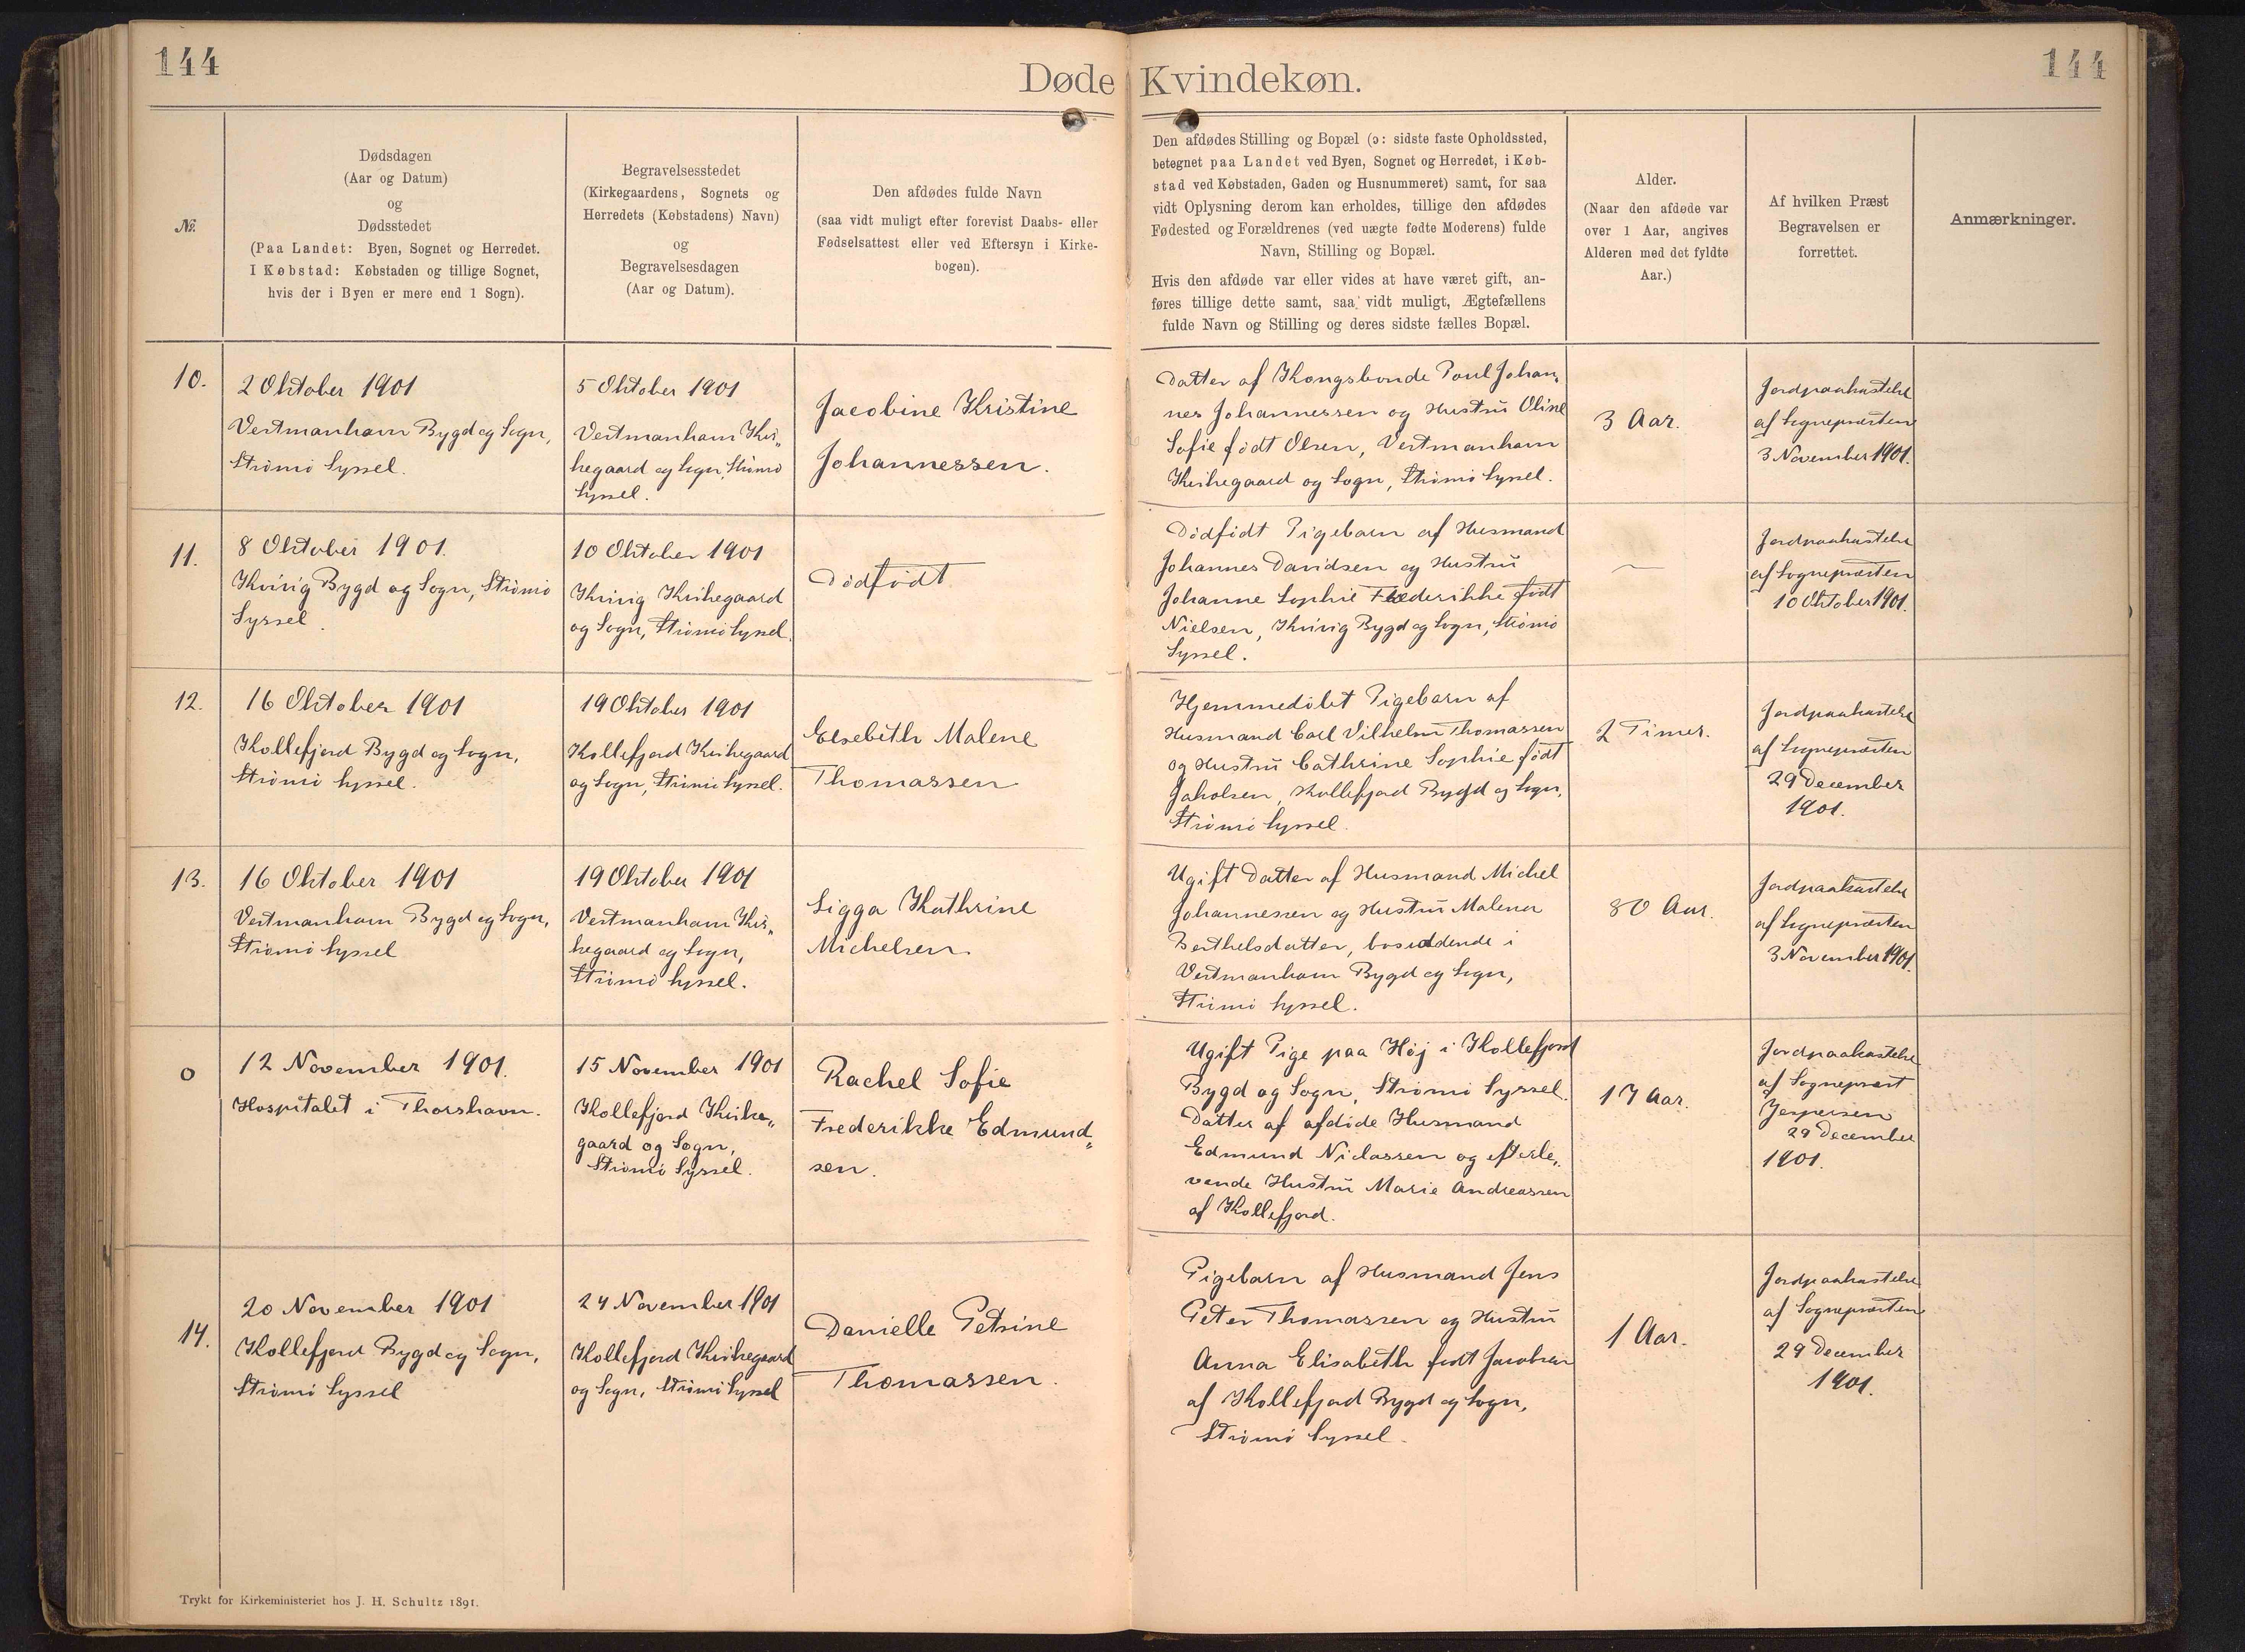 144
144
Døde Kvindekøn.
№.
Dødsdagen
(Aar og Datum)
og
Dødsstedet
(Paa Landet: Byen, Sognet og Herredet.
I Købstad: Købstaden og tillige Sognet,
hvis der i Byen er mere end 1 Sogn).
Begravelsesstedet
(Kirkegaardens, Sognets og
Herredets (Købstadens) Navn)
og
Begravelsesdagen
(Aar og Datum).
Den afdødes fulde Navn
(saa vidt muligt efter forevist Daabs- eller
Fødselsattest eller ved Eftersyn i Kirke-
bogen).
Den afdødes Stilling og Bopæl (ɔ: sidste faste Opholdssted,
betegnet paa Landet ved Byen, Sognet og Herredet, i Køb-
stad ved Købstaden, Gaden og Husnummeret) samt, for saa
vidt Oplysning derom kan erholdes, tillige den afdødes
Fødested og Forældrenes (ved uægte fødte Moderens) fulde
Navn, Stilling og Bopæl.
Hvis den afdøde var eller vides at have været gift, an-
føres tillige dette samt, saa vidt muligt, Ægtefællens
fulde Navn og Stilling og deres sidste fælles Bopæl.
Alder.
(Naar den afdøde var
over 1 Aar, angives
Alderen med det fyldte
Aar.)
Af hvilken Præst
Begravelsen er
forrettet.
Anmærkninger.
10.
2 Oktober 1901
Vestmanhavn Bygd og Sogn,
Strömö Syssel.
5 Oktober 1901
Vestmanhavn Kir„
kegaard og Sogn, Strömö
Syssel.
Jacobine Kristine
Johannessen.
Datter af Kongsbonde Poul Johan„
nes Johannessen og Hustrû Oline
Sofie født Olsen, Vestmanhavn
Kirkegaard og Sogn, Strömö Syssel.
3 Aar.
Jordpaakastelse
af Sognepræsten
3 November 1901.
11.
8 Oktober 1901.
Kvivig Bygd og Sogn, Strömö
Syssel.
10 Oktober 1901
Kvivig Kirkegaard
og Sogn, Strömö Syssel.
Dødfødt
Dödfödt Pigebarn af Husmand
Johannes Davidsen og Hustrû
Johanne Sophie Frederikke født
Nielsen, Kvivig Bygd og Sogn, Strömö
Syssel.
—
Jordpaakastelse
af Sognepræsten
10 Oktober 1901.
12.
16 Oktober 1901
Kollefjord Bygd og Sogn,
Strömö Syssel.
19 Oktober 1901
Kollefjord Kirkegaard
og Sogn, Strömö Syssel.
Elsebeth Malene
Thomassen
Hjemmedöbt Pigebarn af
Husmand Carl Vilhelm Thomassen
og Hustrû Cathrine Sophie født
Jakobsen, Kollefjord Bygd og Sogn,
Strömö Syssel.
2 Timer.
Jordpaakastelse
af Sognepræsten
29 December
1901.
13.
16 Oktober 1901
Vestmanhavn Bygd og Sogn,
Strömö Syssel
19 Oktober 1901
Vestmanhavn Kir„
kegaard og Sogn,
Strömö Syssel.
Sigga Kathrine
Michelsen.
Ugift Datter af Husmand Michel
Johannessen og Hustrû Malena
Berthelsdatter, bosiddende i
Vestmanhavn Bygd og Sogn,
Strömö Syssel.
80 Aar.
Jordpaakastelse
af Sognepræsten
3 November 1901.
0
12 November 1901.
Hospitalet i Thorshavn.
15 November 1901
Kollefjord Kirke„
gaard og Sogn,
Strömö Syssel.
Rachel Sofie
Frederikke Edmund„
sen.
Ugift Pige paa Høj i Kollefjord
Bygd og Sogn, Strömö Syssel.
Datter af afdöde Husmand
Edmund Niclassen og efterle„
vende Hustrû Marie Andreassen
af Kollefjord.
17 Aar.
Jordpaakastelse
af Sognepræst
Jespersen
29 December
1901.
14.
20 November 1901
Kollefjord Bygd og Sogn,
Strömö Syssel
24 November 1901
Kollefjord Kirkegaard
og Sogn, Strömö Syssel
Danielle Petrine
Thomassen.
Pigebarn af Husmand Jens
Peter Thomassen og Hustrû
Anna Elisabeth født Jacobsen
af Kollefjord Bygd og Sogn,
Strömö Syssel.
1 Aar.
Jordpaakastelse
af Sognepræsten
29 December
1901.
Trykt for Kirkeministeriet hos J. H. Schultz 1891.